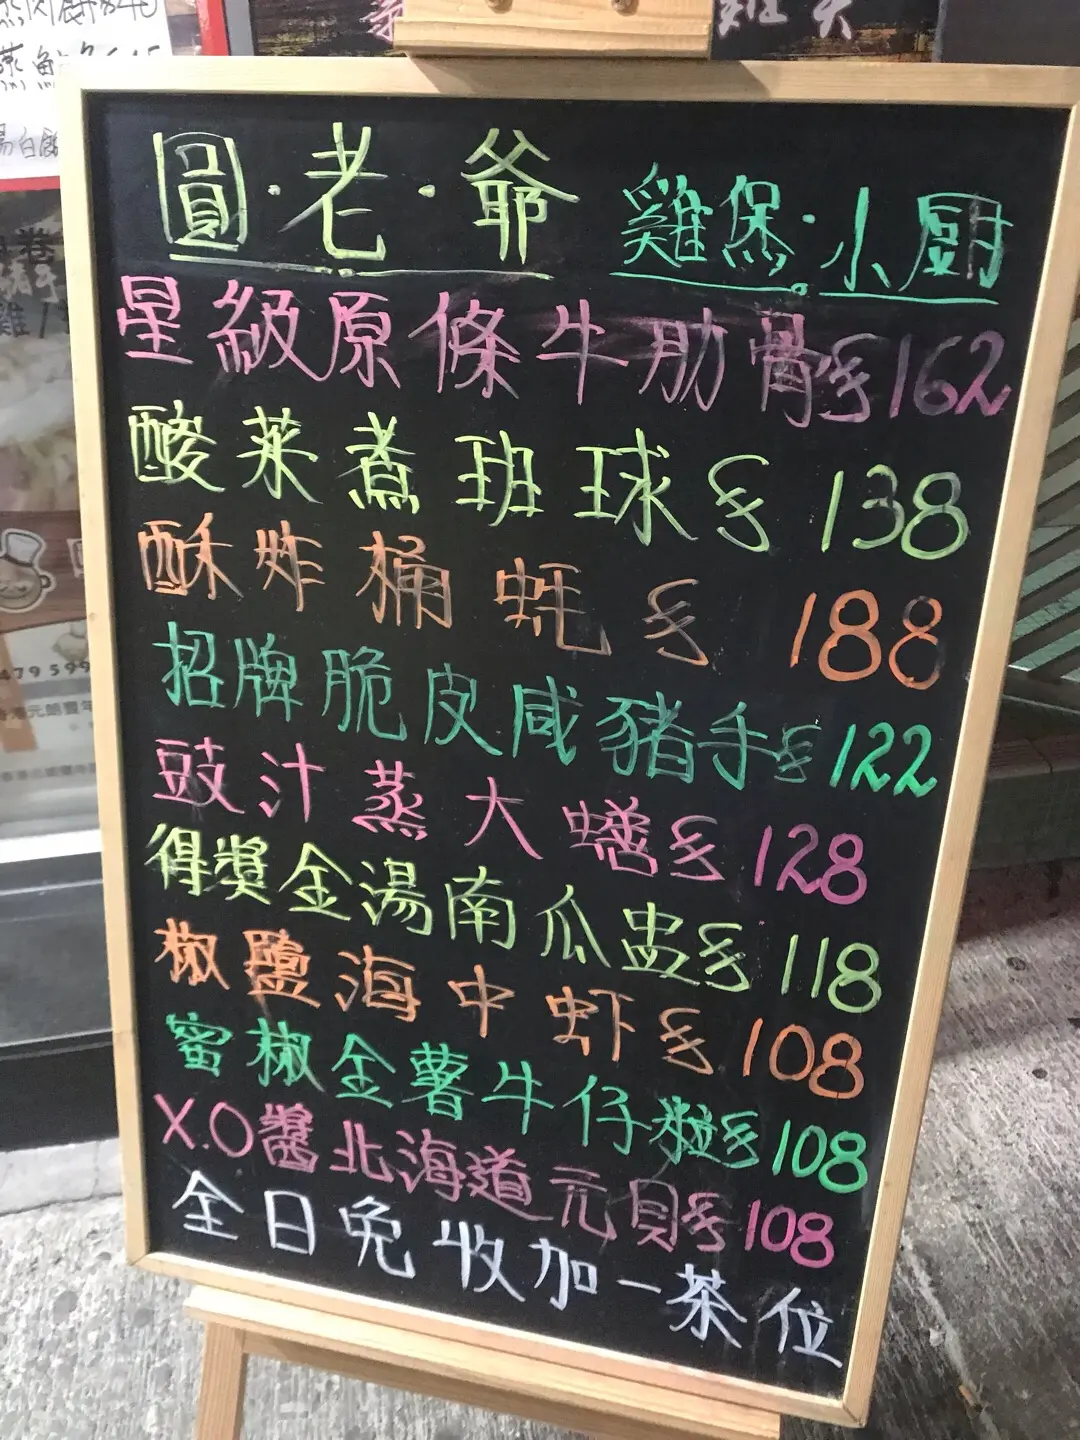 圓·老·爺 雞煲·小厨
星級原條牛肋骨 $162
酸菜煮班球 $ 138
酥炸桶蚝 $ 188
招牌脆皮咸豬手 $122
豉汁蒸大鱔 $128
得獎金湯南瓜盅 $118
椒鹽海中虾 $ 108
蜜椒金薯牛仔粒 $108
X.O醬北海道元貝 $108
全日免收加一茶位
479 599